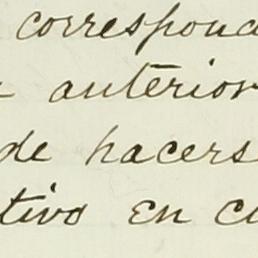 corresponda
anterior
de hacers
tivo en cu